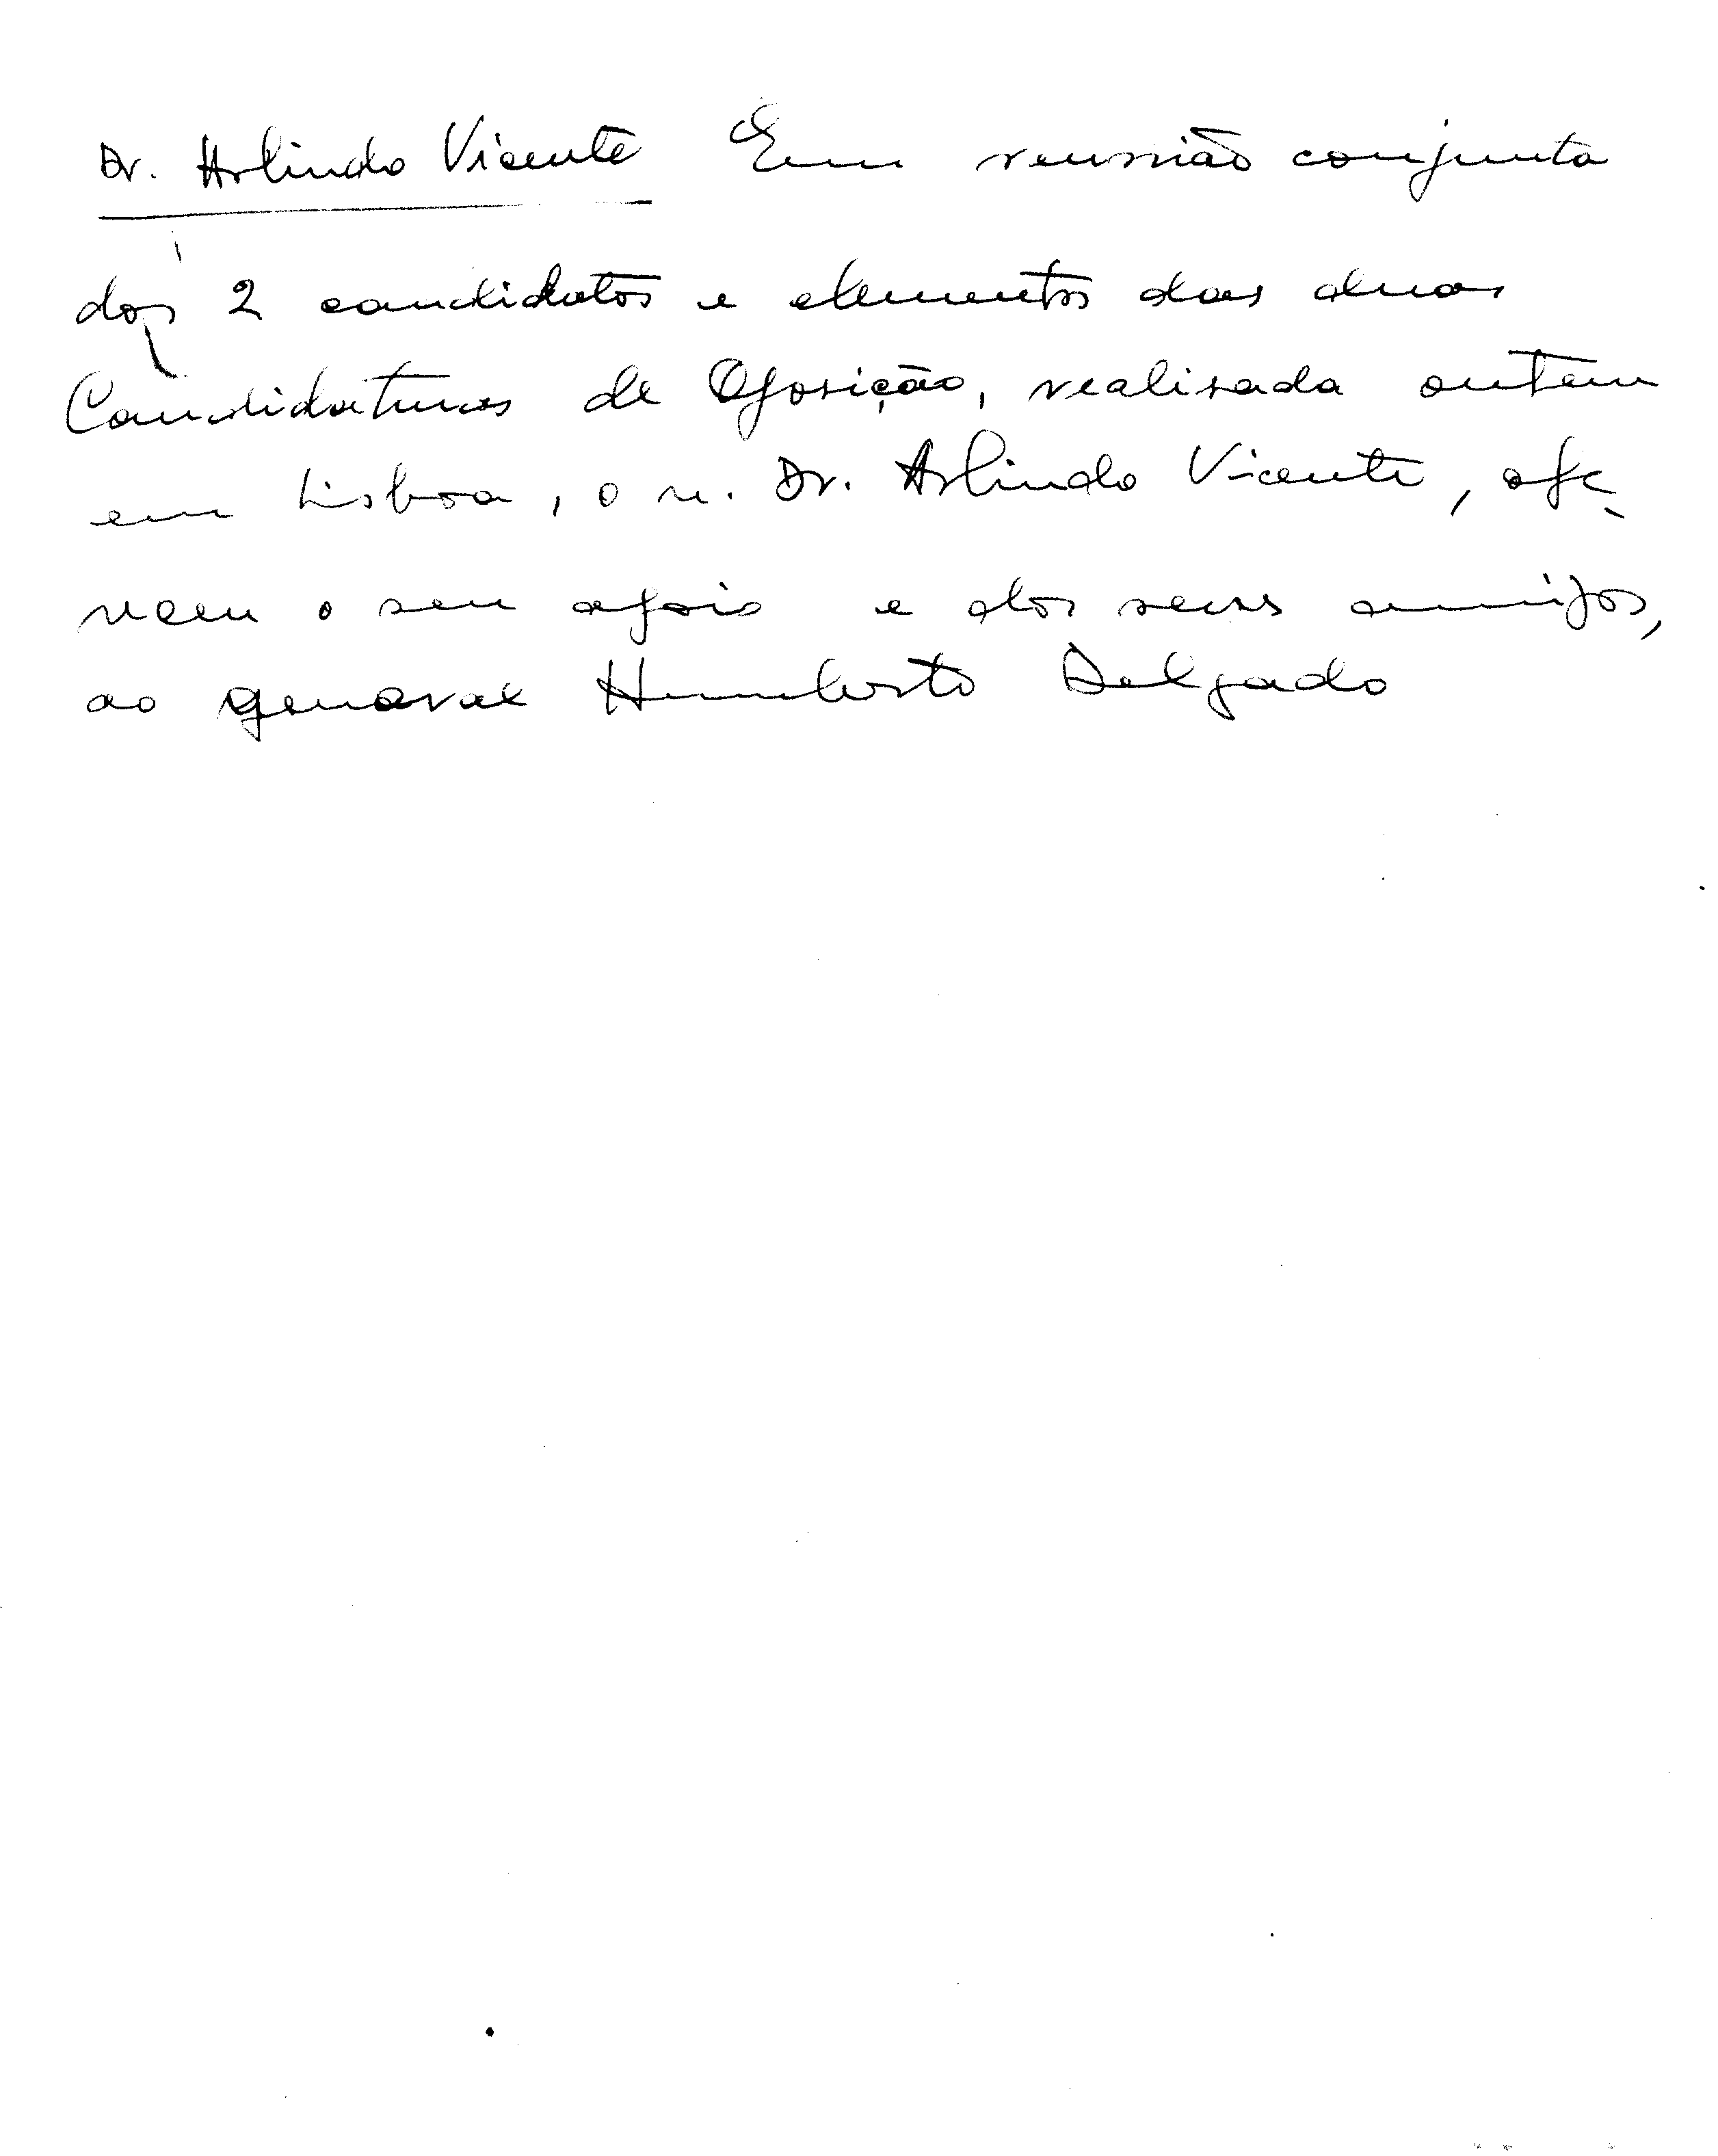 Dr. Arlindo Vicente Em reunião conjunta
dos 2 candidatos e elementos das duas
Candidaturas de Oposição, realisada ontem
em Lisboa, o sr. Dr. Arlindo Vicente, ofe
receu o seu apoio e dos seus amigos,
ao general Humberto Delgado